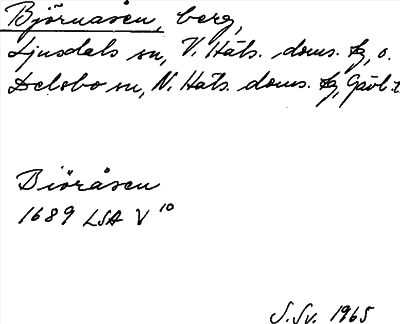 Björnåsen, berg,
Ljusdals sn, V. Häls. doms. tg, o.
Delsbo sn, N. Häls. doms. tg, Gävl. l.
Biöråsen
1689 LSA V 10
S. Sv. 1965